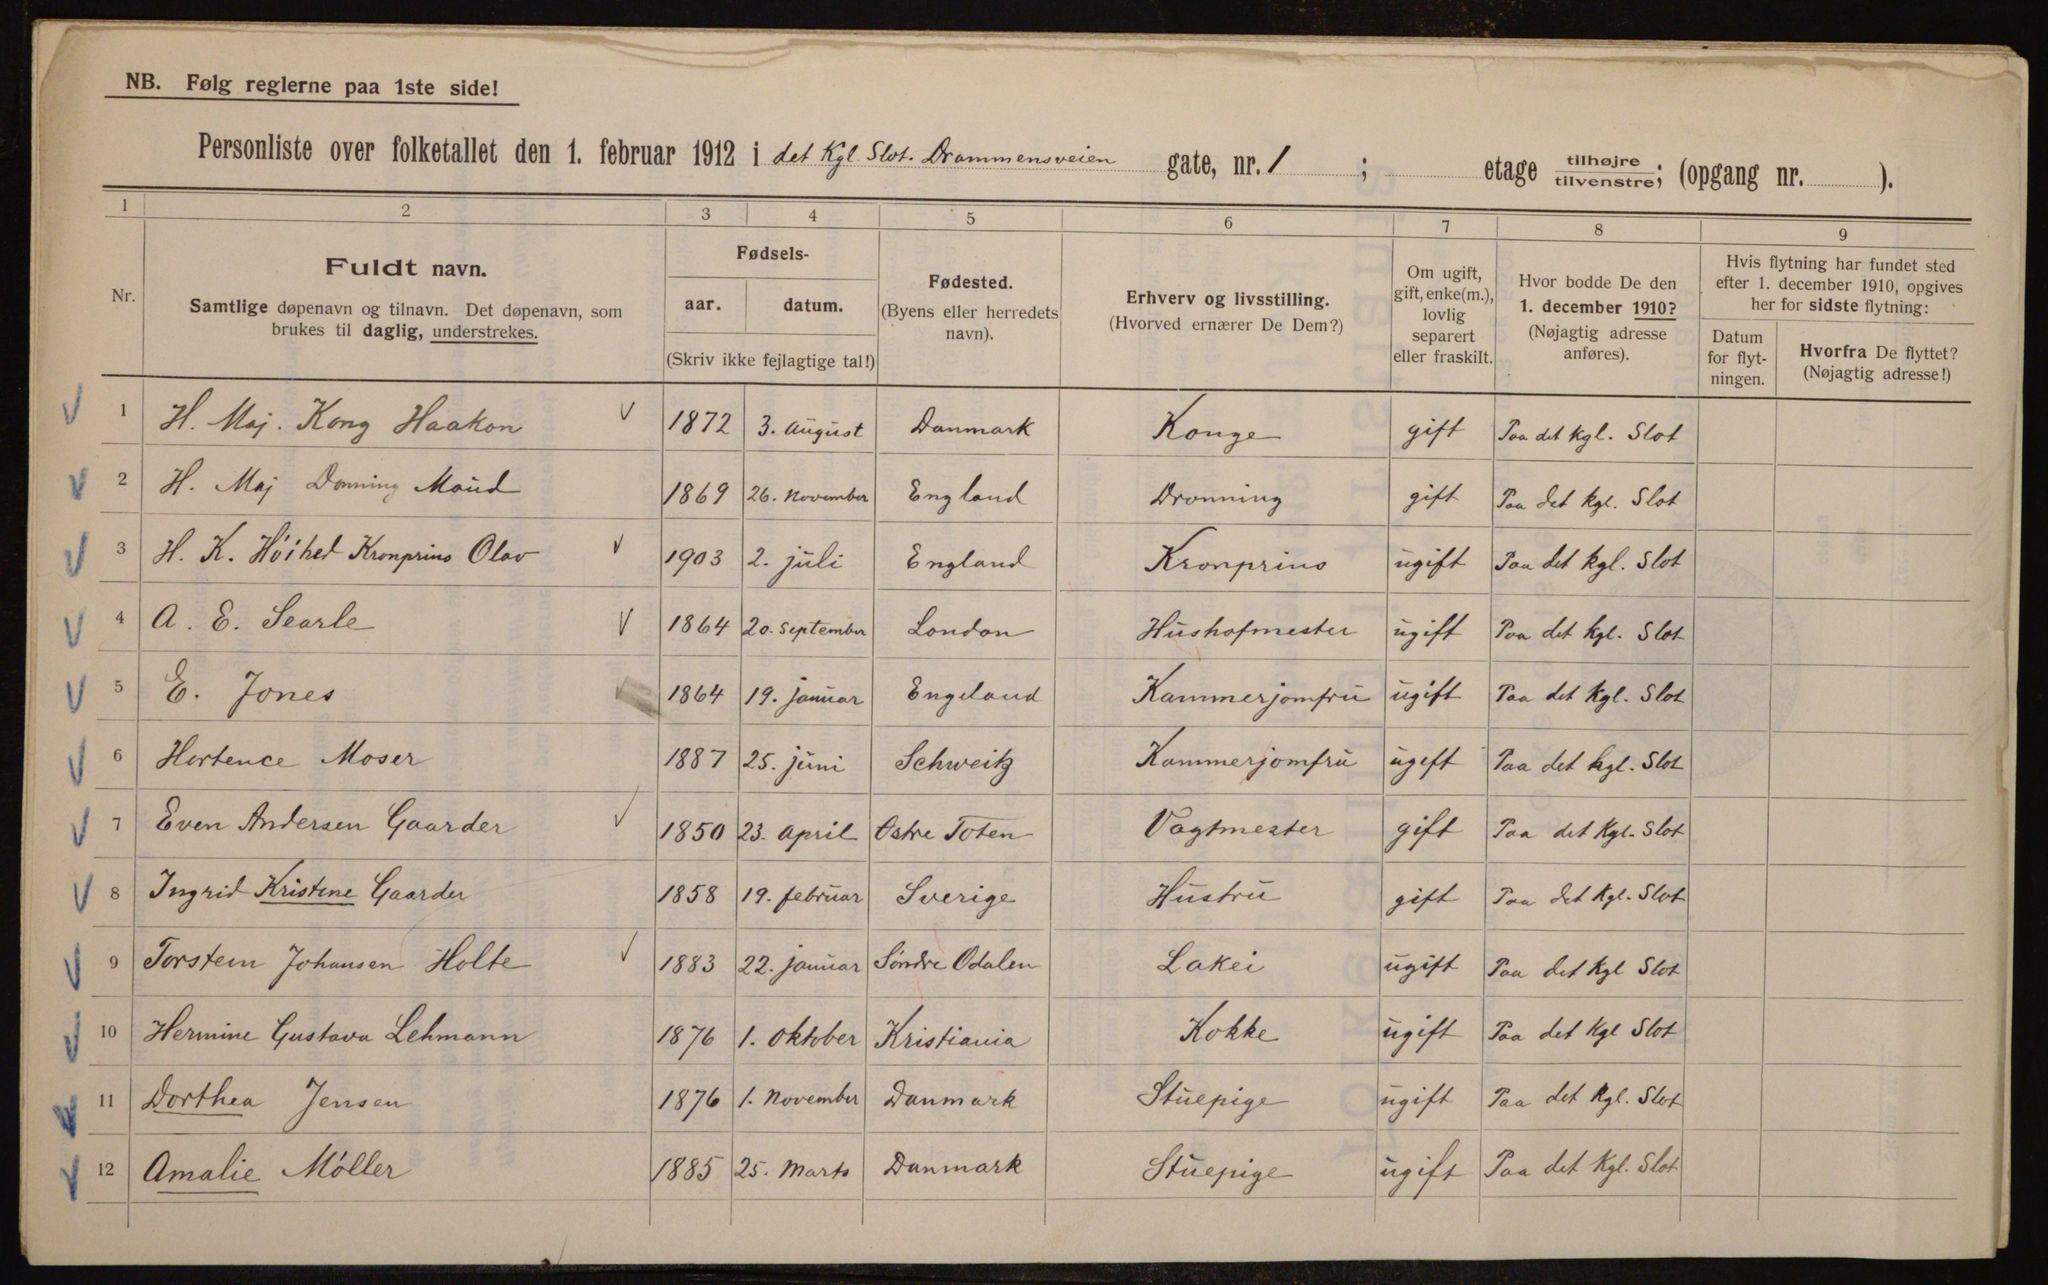 NB. Følg reglerne paa 1ste side!
Personliste over folketallet den 1. februar 1912 i det Kgl. Slot. Drammensveien gate, nr. 1 ; etage tilhøjre tilvenstre; (opgang nr. ).
1 2 3 4 5 6 7 8 9
Nr.
Fuldt navn.
Samtlige døpenavn og tilnavn. Det døpenavn, som
brukes til daglig, understrekes.
Fødsels-
aar. datum.
(Skriv ikke fejlagtige tal!)
Fødested.
(Byens eller herredets
navn).
Erhverv og livsstilling.
(Hvorved ernærer De Dem?)
Om ugift,
gift, enke(m.),
lovlig
separert
eller fraskilt.
Hvor bodde De den
1. december 1910?
(Nøjagtig adresse
anføres).
Hvis flytning har fundet sted
efter 1. december 1910, opgives
her for sidste flytning:
Datum
for flyt-
ningen.
Hvorfra De flyttet?
(Nøjagtig adresse!)
1 H. Maj. Kong Haakon 1872 3. August Danmark Konge gift Paa det Kgl. Slot
2 H. Maj Donning Maud 1869 26. November England Dronning gift Paa det kgl. Slot
3 H. K. Höihed Kronprins Olav 1903 2. juli England Kronprins ugift Paa det kgl. Slot
4 A. E. Searle 1864 20. September London Hushofmester ugift Paa det kgl. Slot
5 E. Jones 1864 19. januar Engeland Kammerjomfru ugift Paa det Kgl. Slot
6 Hortence Moser 1887 25. juni Schweitz Kammerjomfru ugeft Paa det kgl. Slot
7 Even Andersen Gaarder 1850 23. April Østre Toten Vagtmester gift Paa det Kgl. Slot
8 Ingrid Kristine Gaarder 1858 19. februar Sverige Hustru gift Paa det Kgl. Slot
9 Torstein Johansen Holte 1883 22. januar Söndre Odalen Lakei ugift Paa det Kgl Slot
10 Hermine Gustava Lehmann 1876 1. Oktober Kristiania Kokke ugift Paa det Kgl Slot
11 Dorthea Jensen 1876 1. November Danmark Stuepige ugift Paa det Kgl. Slot
12 Amalie Möller 1885 25. Marts Danmark Stuepige ugift Paa det Kgl. Slot